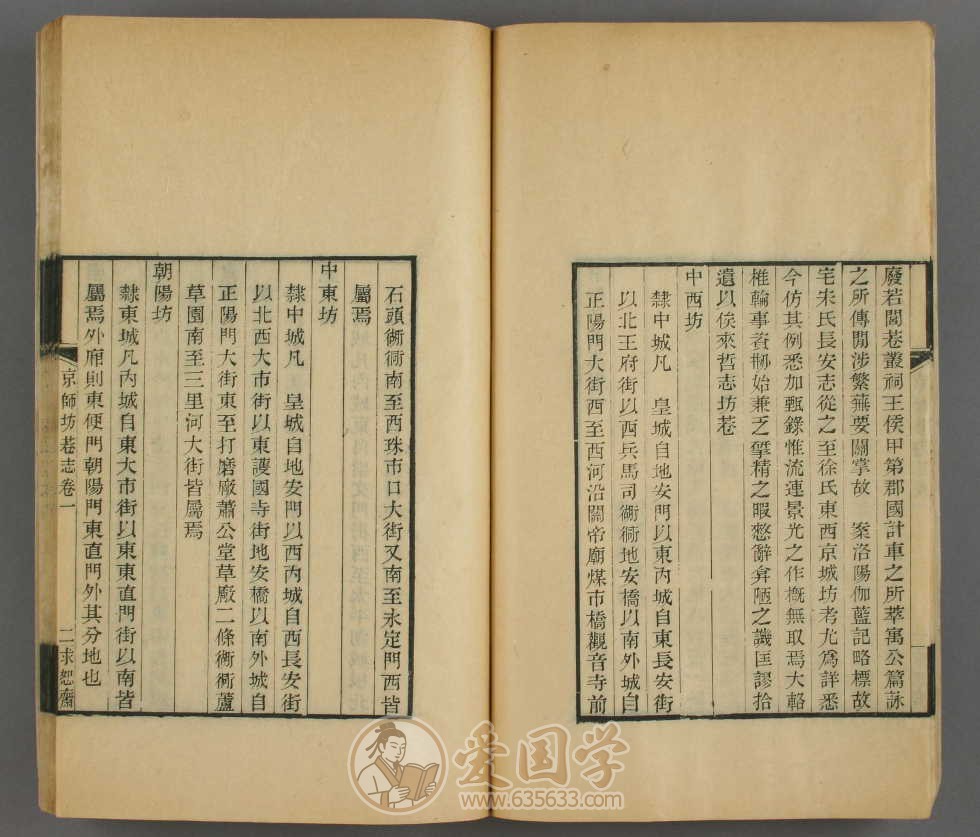 廢若閭巷叢祠王侯甲第郡國計車之所萃寓公篇詠
之所傳聞涉繁蕪要關掌故　案洛陽伽藍記略標故
宅宋氏長安志從之至徐氏東西京城坊考尤為詳悉
今仿其例悉加甄錄惟流連景光之作槪無取焉大輅
椎輪事資剙始兼乏揅精之暇慙辭弇陋之譏匡謬拾
遺以俟來哲志坊巷
中西坊
隸中城凡　皇城自地安門以東內城自東長安街
以北王府街以西兵馬司衚衕地安橋以南外城自
正陽門大街西至西河沿關帝廟煤市橋觀音寺前
石頭衚衕南至西珠市口大街又南至永定門西皆
屬焉
中東坊
隸中城凡　皇城自地安門以西內城自西長安街
以北西大市街以東護國寺街地安橋以南外城自
正陽門大街東至打磨廠蕭公堂草廠二條衚衕蘆
草園南至三里河大街皆屬焉
朝陽坊
隸東城凡內城自東大市街以東東直門街以南皆
屬焉外廂則東便門朝陽門東直門外其分地也
京師坊巷志卷一
二求恕齋
爱国学
www.635633.com